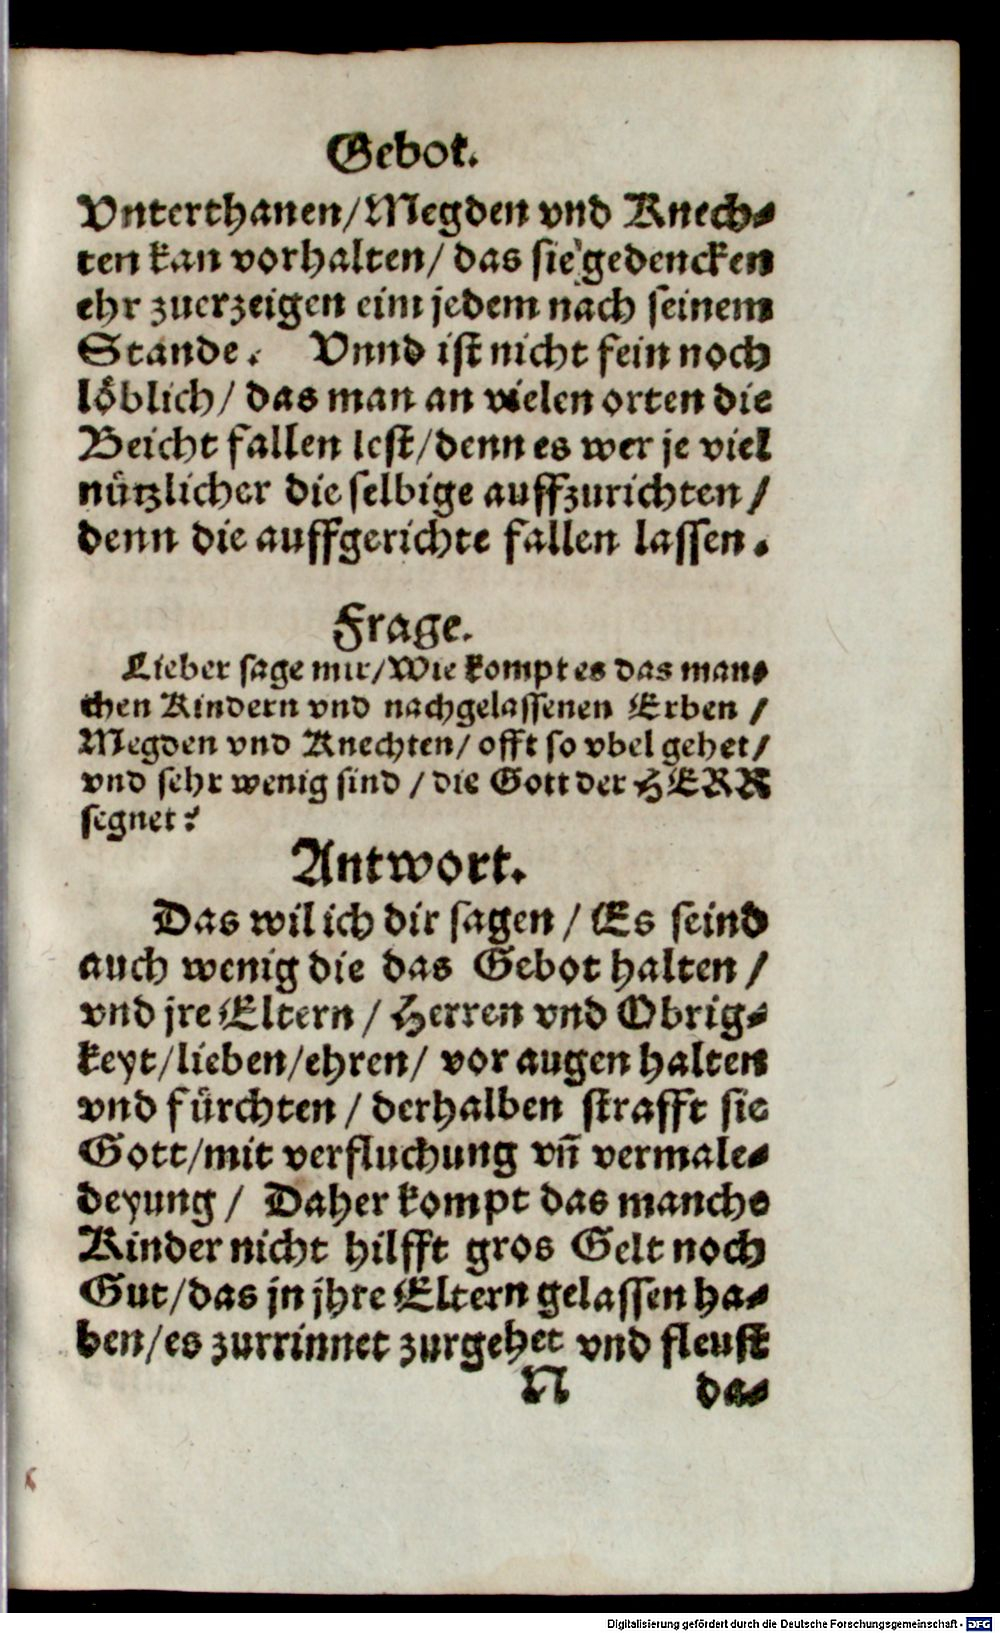 Gebot.
Vnterthanen/Megden vnd Knech-
ten kan vorhalten/ das sie gedencken
ehr zuerzeigen eim jedem nach seinem
Stande. Vnnd ist nicht fein noch
löblich/ das man an vielen orten die
Beicht fallen lest/denn es wer je viel
nützlicher die selbige auffzurichten/
denn die auffgerichte fallen lassen.
Frage.
Lieber sage mir/Wie kompt es das man-
chen Kindern vnd nachgelassenen Erben/
Megden vnd Knechten/ offt so vbel gehet/
vnd sehr wenig sind/ die Gott der HERR
segnet?
Antwort.
Das wil ich dir sagen/ Es seind
auch wenig die das Gebot halten/
vnd jre Eltern/ Herren vnd Obrig-
keyt/lieben/ehren/ vor augen halten
vnd fürchten/ derhalben strafft sie
Gott/mit verfluchung vñ vermale-
deyung/ Daher kompt das manche
Kinder nicht hilfft gros Gelt noch
Gut/das jn jhre Eltern gelassen ha-
ben/es zurrinnet zurgehet vnd fleust
N da-
Digitalisierung gefördert durch die Deutsche Forschungsgemeinschaft - DFG